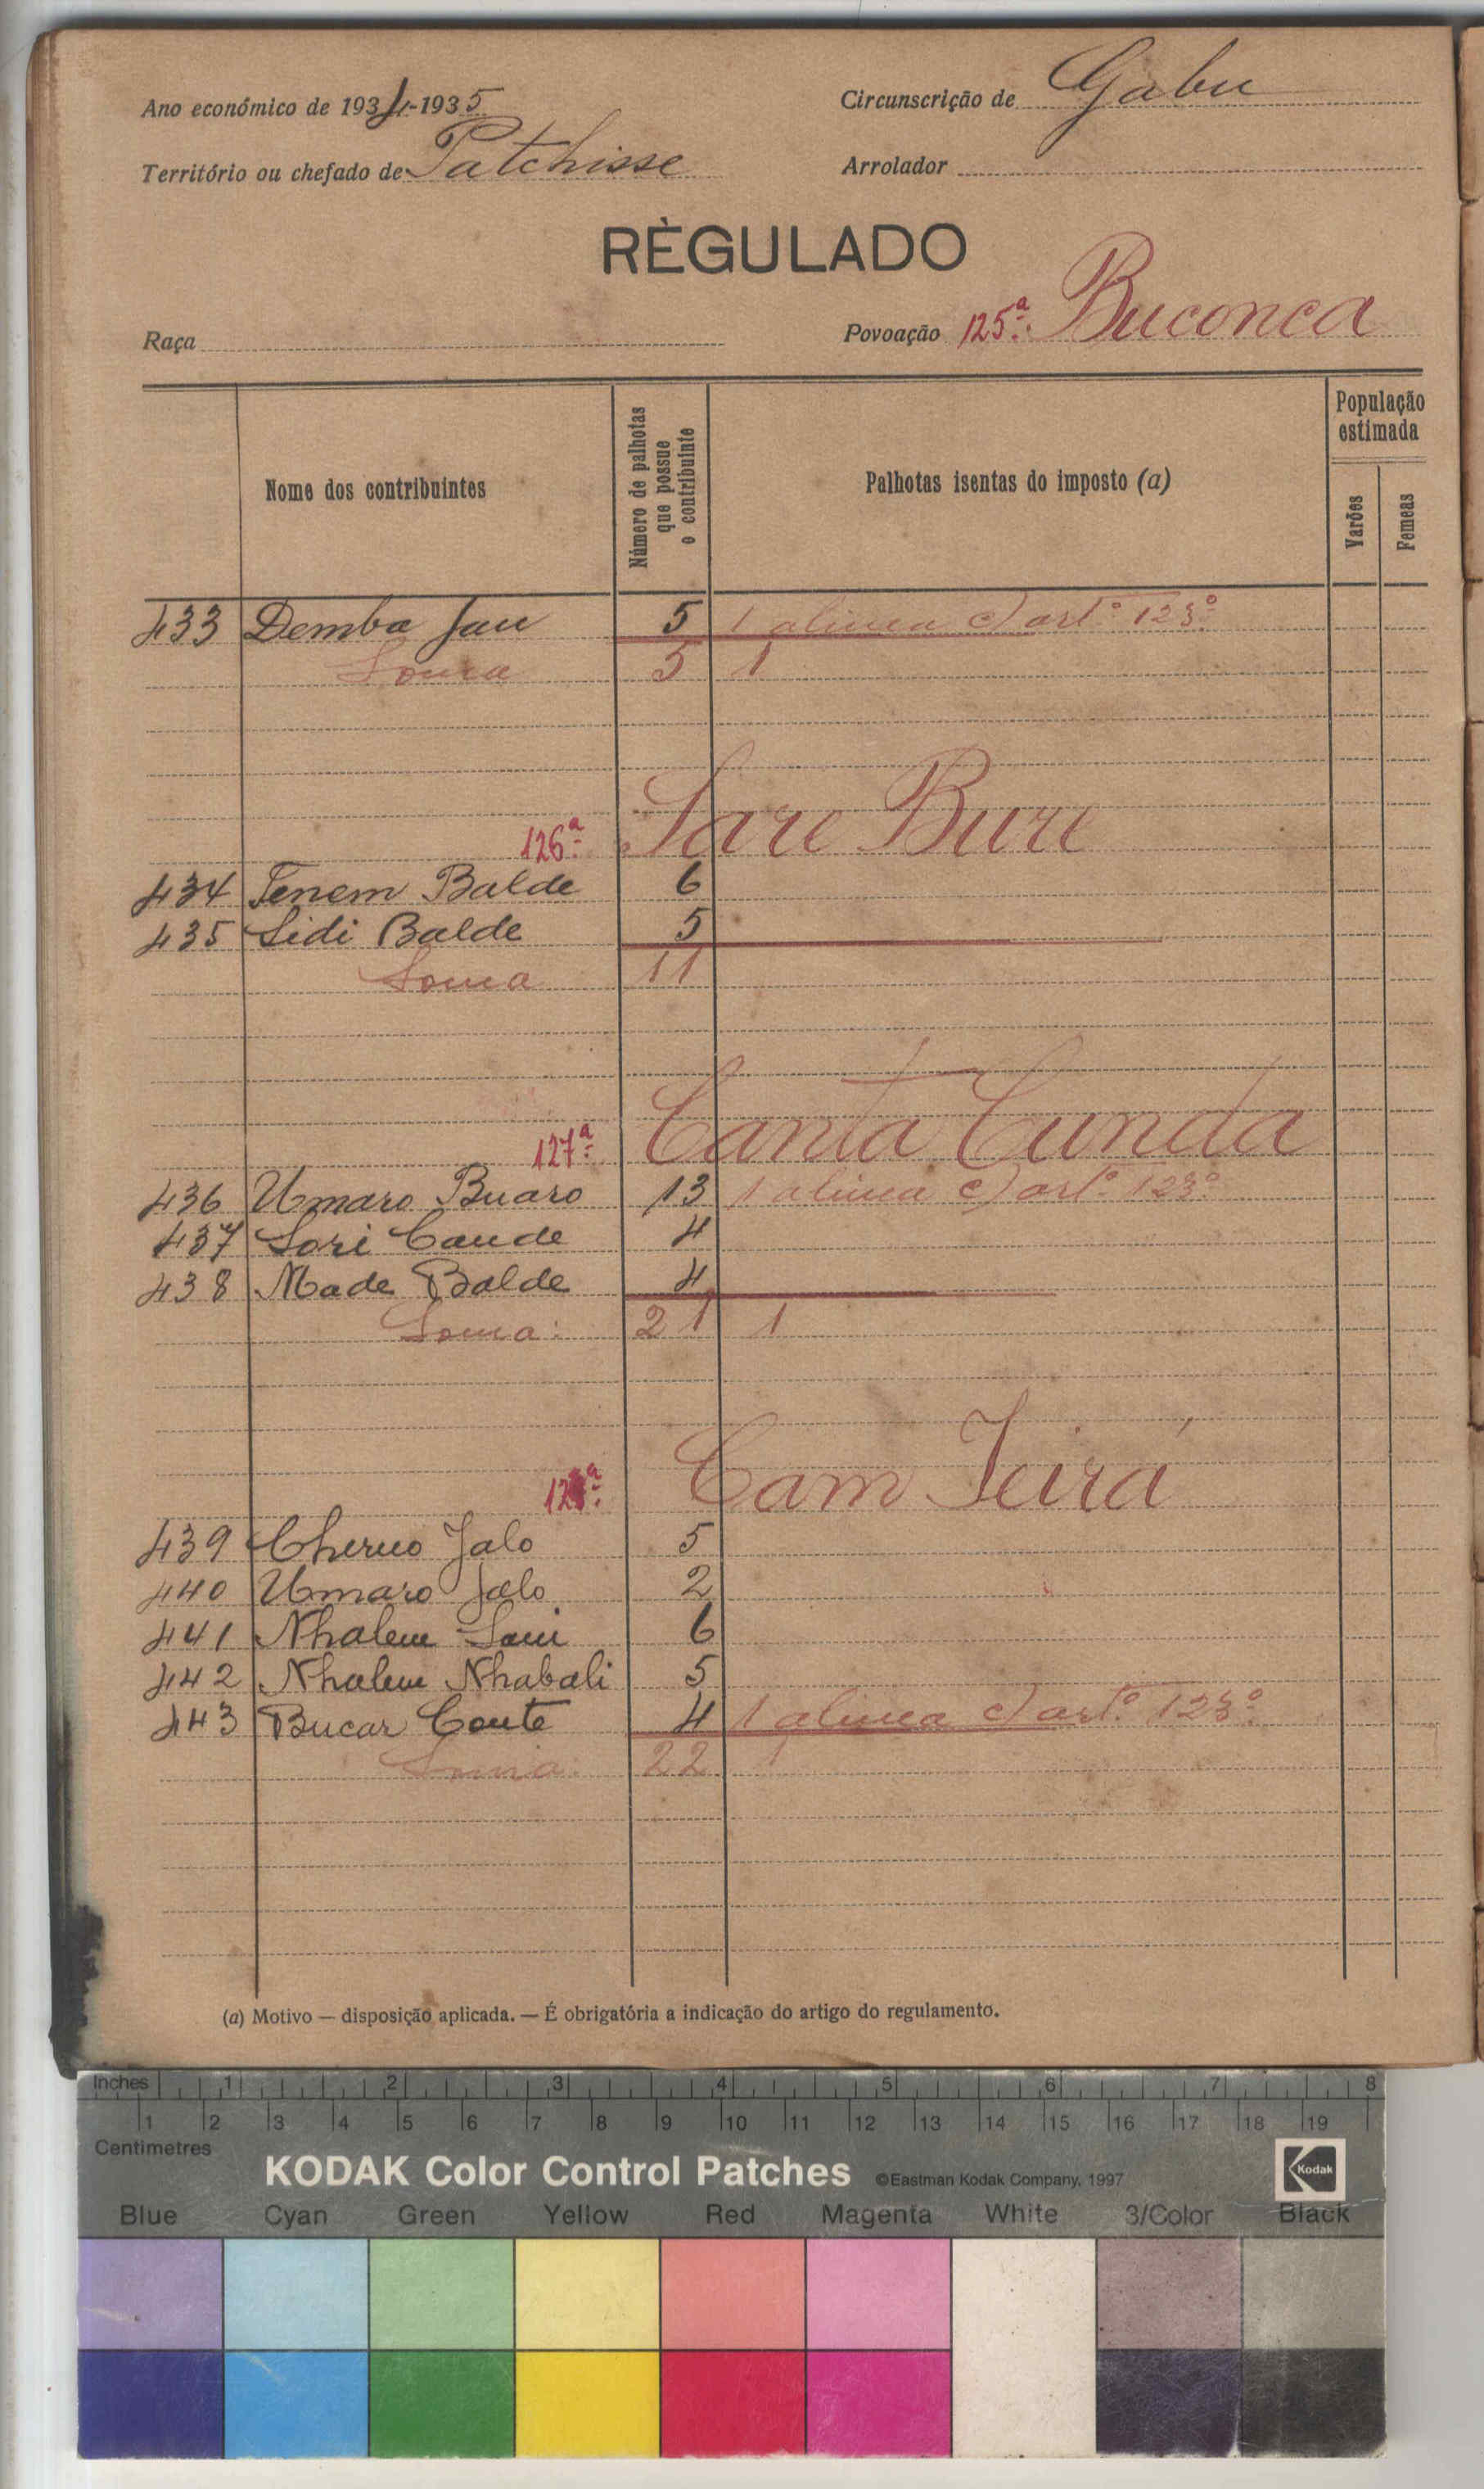 Ano económico de 1934-1935 Circunscrição de Gabu
Território ou chefado de Patchisse Arrolador
RÈGULADO
Raça Povoação 125ª Buconca
Nome dos contribuintes
Número de palhotas
que possue
o contribuinte
Palhotas isentas do imposto (a)
População
estimada
Varões
Femeas
433 Demba Jau 5 1 alinea c) artº 123º
Soma 5 1
126ª Sare Bure
434 Tenem Balde 6
435 Sidi Balde 5
Soma 11
127ª Canta Cunda
436 Umaro Buaro 13 1 alinea c) artº 123º
437 Sori Cande 4
438 Made Balde 4
Soma: 21 1
128ª Cam Jeirá
439 Cherno Jalo 5
440 Umaro Jalo 2
441 Nhalem Sani 6
442 Nhalem Nhabali 5
443 Bucar Conte 4 1 alinea c) artº 123º
Soma: 22 1
(a) Motivo — disposição aplicada. — É obrigatória a indicação do artigo do regulamento.
Inches 1 2 3 4 5 6 7 8
1 2 3 4 5 6 7 8 9 10 11 12 13 14 15 16 17 18 19
Centimetres
KODAK Color Control Patches ©Eastman Kodak Company, 1997 Kodak
Blue Cyan Green Yellow Red Magenta White 3/Color Black